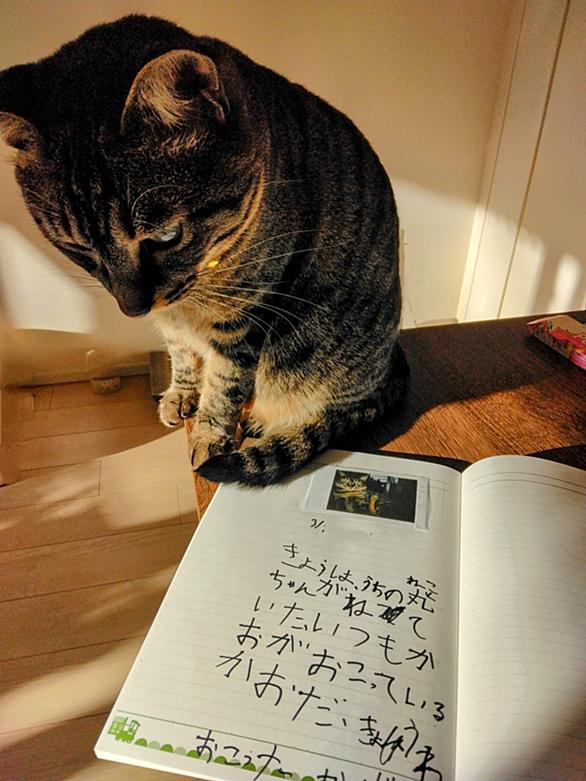 3/.
ねこ
きょうは、うちの丸
ちゃんがねて
いた。いつもか
おがおこっている
かおだ、きょうわ
おこった